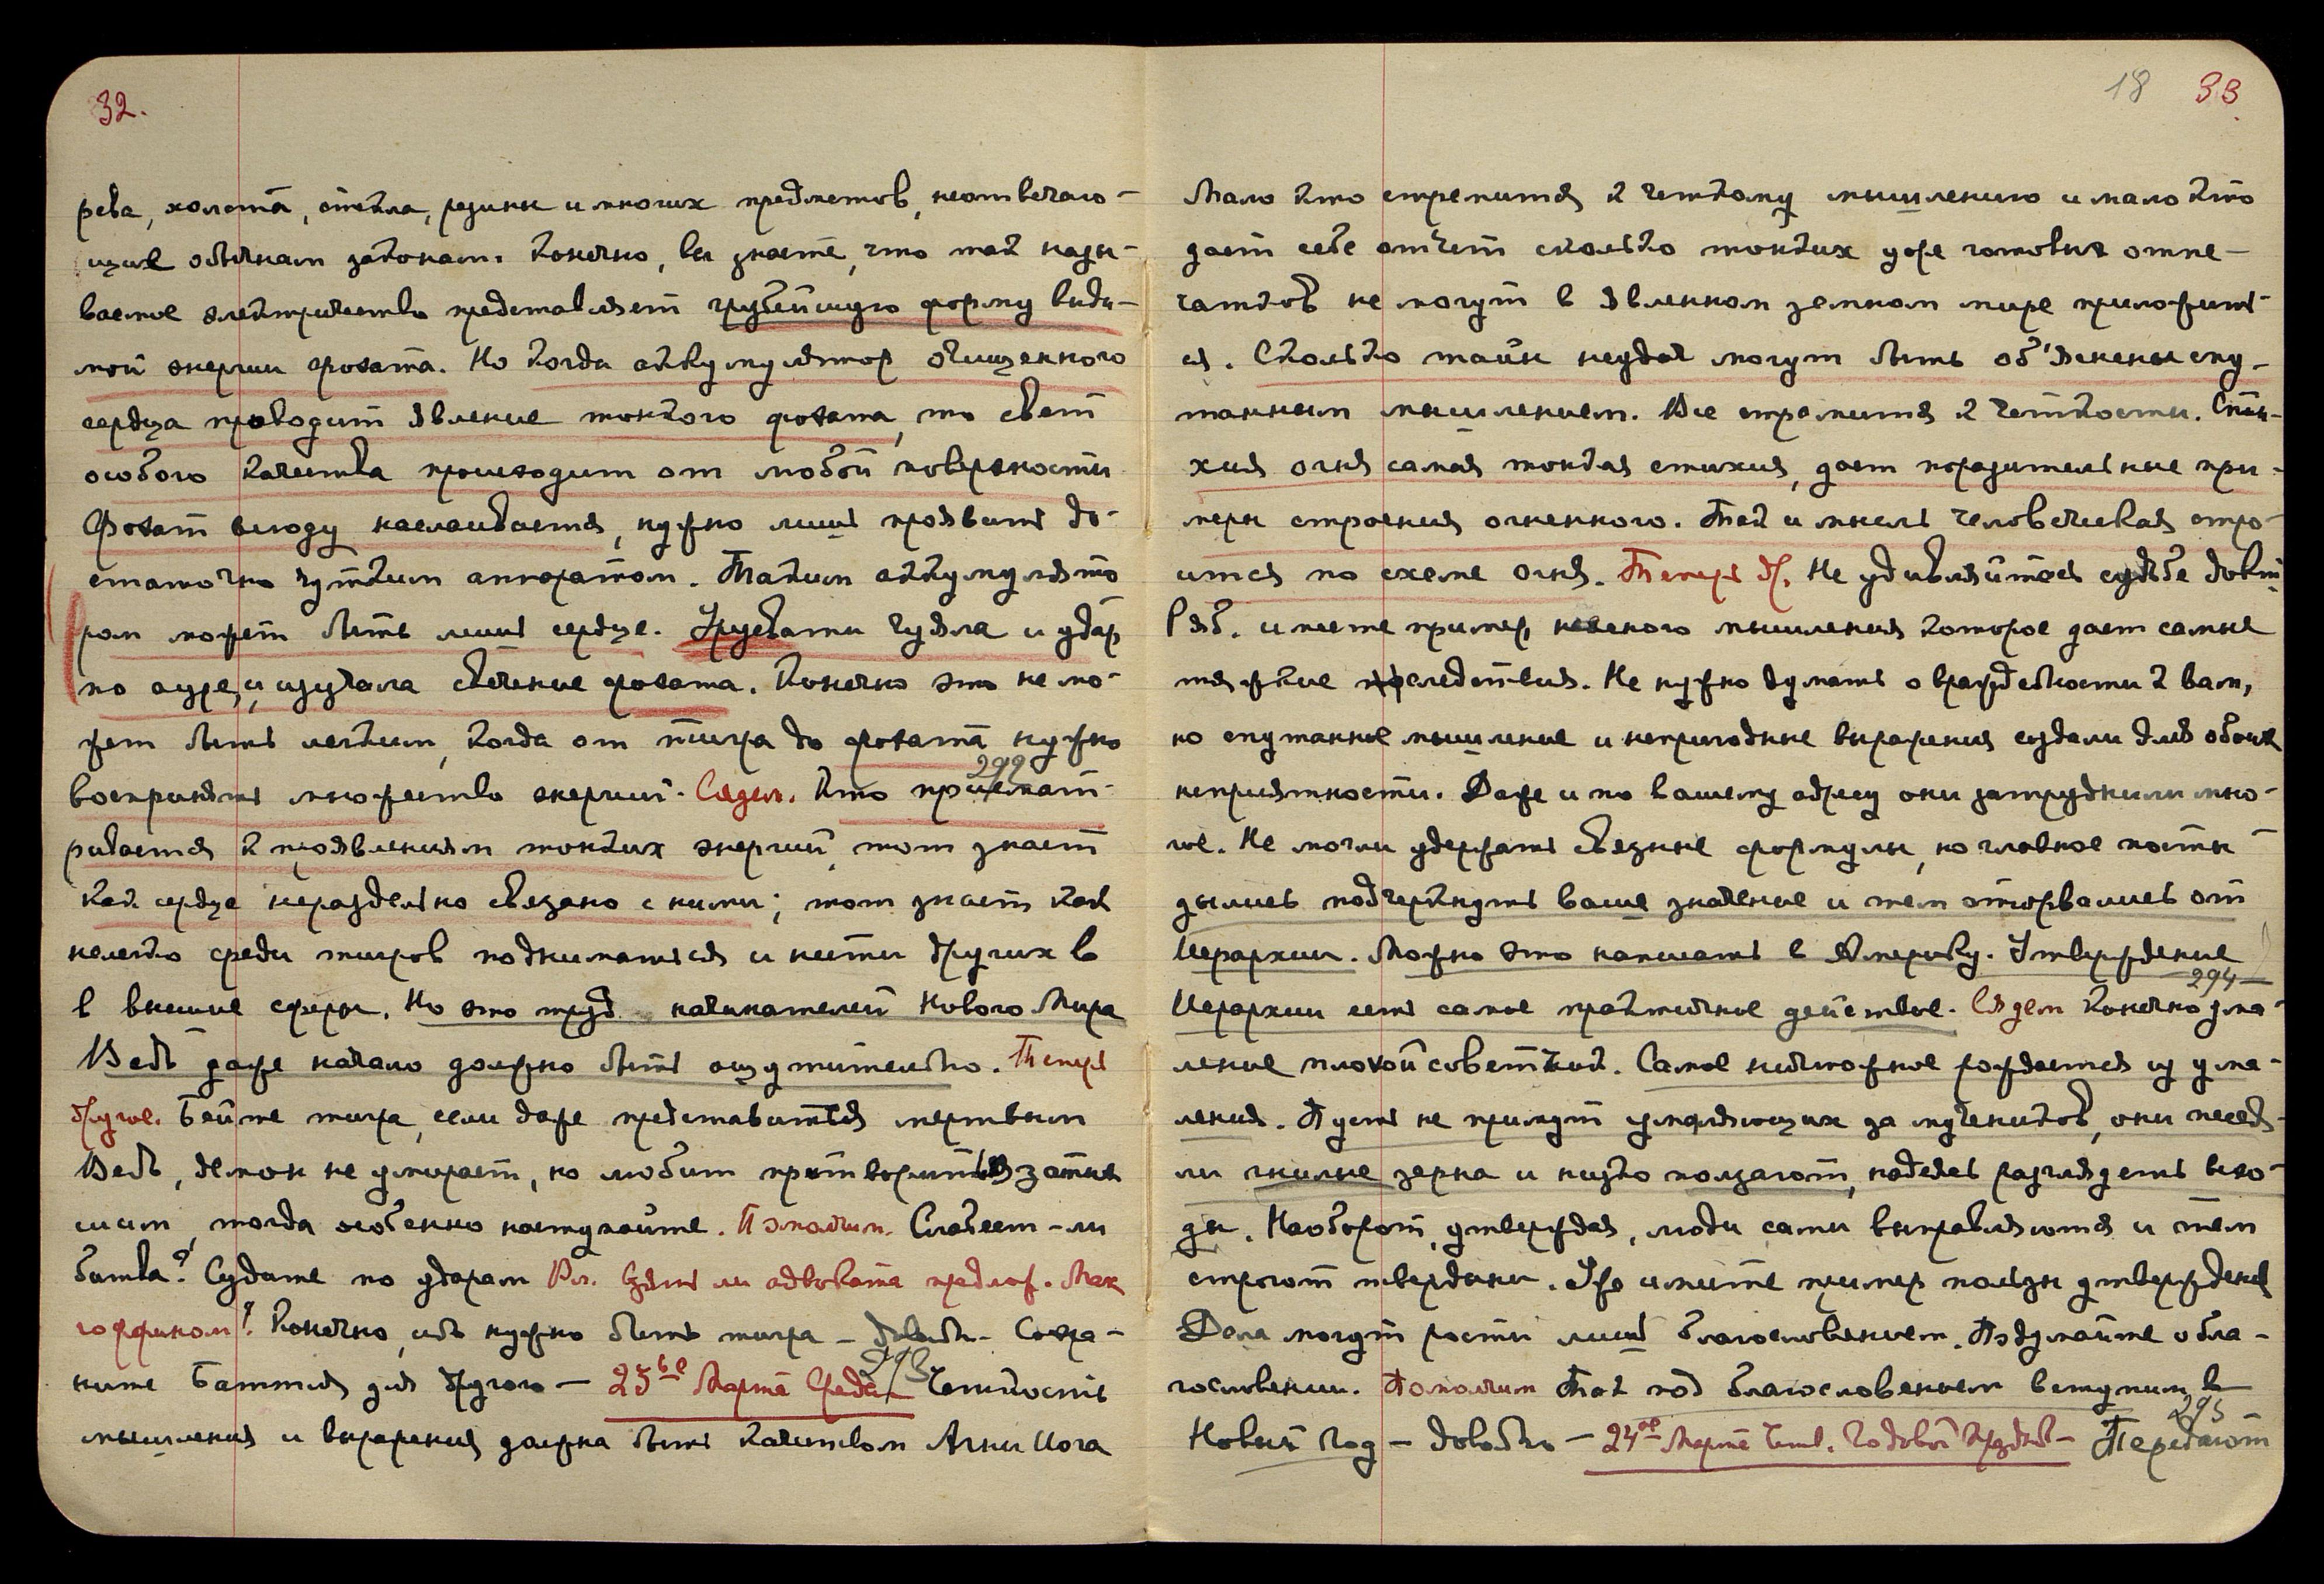 32.
рева, холста, стекла, резины и многих предметов, неотвечаю-
щих обычным законам. Конечно, вы знаете, что так назы-
ваемое электричество представляет грубейшую форму види-
мой энергии фохата. Но когда аккумулятор очищенного
сердца приводит явление тонкого фохата, то свет
особого качества происходит от любой поверхности
Фохат всюду наслаивается, нужно лишь проявить до-
статочно чутким аппаратом. Таким аккумулято
ром может быть лишь сердце. Урусвати чуяла и удар
по ауре, и изучала свечение фохата. Конечно это не мо-
жет быть легким, когда от тигра до фохата нужно
292
воспринять множество энергий. Сядем. Кто присматри-
ривается к проявлениям тонких энергий, тот знает
как сердце нераздельно связано с ними; тот знает как
нелегко среди тигров подниматься и нести других в
в высшие сферы. Но это труд начинателей Нового Мира
Ведь даже начало должно быть ощутительно. Теперь
другое. Бейте тигра, если даже представится мертвым
Ведь, демон не умирает, но любит притвориться затих
шим, тогда особенно наступайте. Помолчим. Слабеет-ли
битва? Судите по ударам Вл. Взять ли адвоката предлож. Мак
гоффином? Конечно, ибо нужно бить тигра — Довольно — Сохра-
293
ните Баттля для другого — 23го Марта Среда — Четкость
мышления и выражения должна быть качеством Агни Йога
18 33
Мало кто стремится к четкому мышлению и мало кто
дает себе отчет сколько тонких уже готовых отпе-
чатков не могут в явленном земном мире приложить-
ся. Сколько тайн неудач могут быть об'яснены спу-
танным мышлением. Все стремится к четкости. Сти-
хия огня самая тонкая стихия, дает поразительные при-
меры строения огненного. Так и мысль человеческая стро-
ится по схеме огня. Теперь др. Не удивляйтесь судьбе
Ряб. имеете пример неясного мышления которое дает самые
тяжкие последствия. Не нужно думать о враждебности к вам,
но спутанное мышление и непригодные выражения создали для обоих
неприятности. Даже и по вашему адресу они затруднили мно-
гое. Не могли удержать связные формулы, но главное посты
дились подчеркнуть ваше значение и тем оторвались от
Иерархии. Можно это написать в Америку. Утверждение
294
Иерархии есть самое практичное действие. Сядем Конечно ума-
ление плохой советник. Самое ничтожное рождается из ума-
ления. Пусть не примут умаляющих за мучеников, они посея-
ли гнилые зерна и низко ползают, надеясь разглядеть всхо-
ды. Наоборот, утверждая, люди сами выправляются и тем
строют твердыни. Уже имеете пример пользы утверждения
Дела могут расти лишь благословением. Подумайте о бла-
гословении. Помолчим Так под благословением вступим в
295
Новый Год — довольно — 24го Марта Четв. Годовой Праздник — Передают